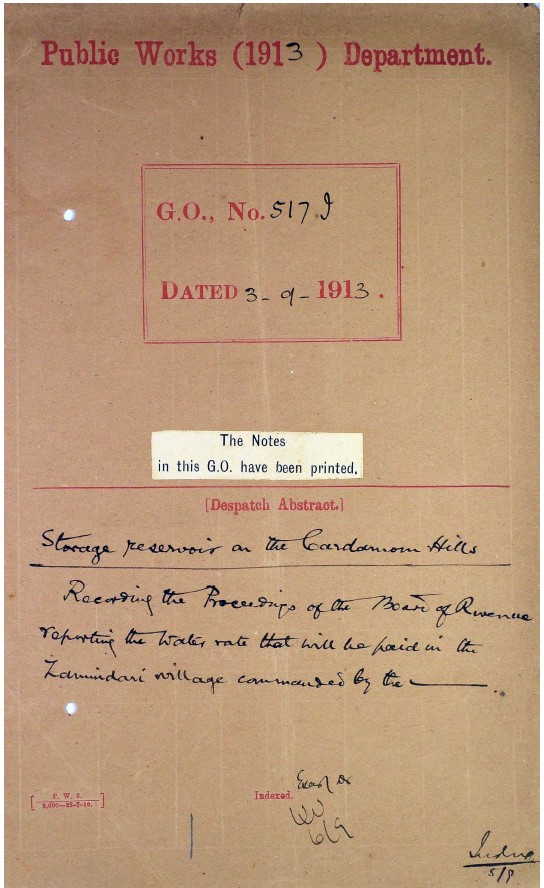 Public Works (1913) Department.
G.O., No. 517 I
DATED 3-9-1913.
The Notes
in this G.O. have been printed.
[Despatch Abstract.]
Storage reservoir on the Cardamom Hills
Recording the Proceedings of the Board of Revenue
reporting the water rate that will be paid in the
Zamindari village commanded by the ———.
P. W. 5.
2,000—23-7-10.
Indexed.
6/9
5/9